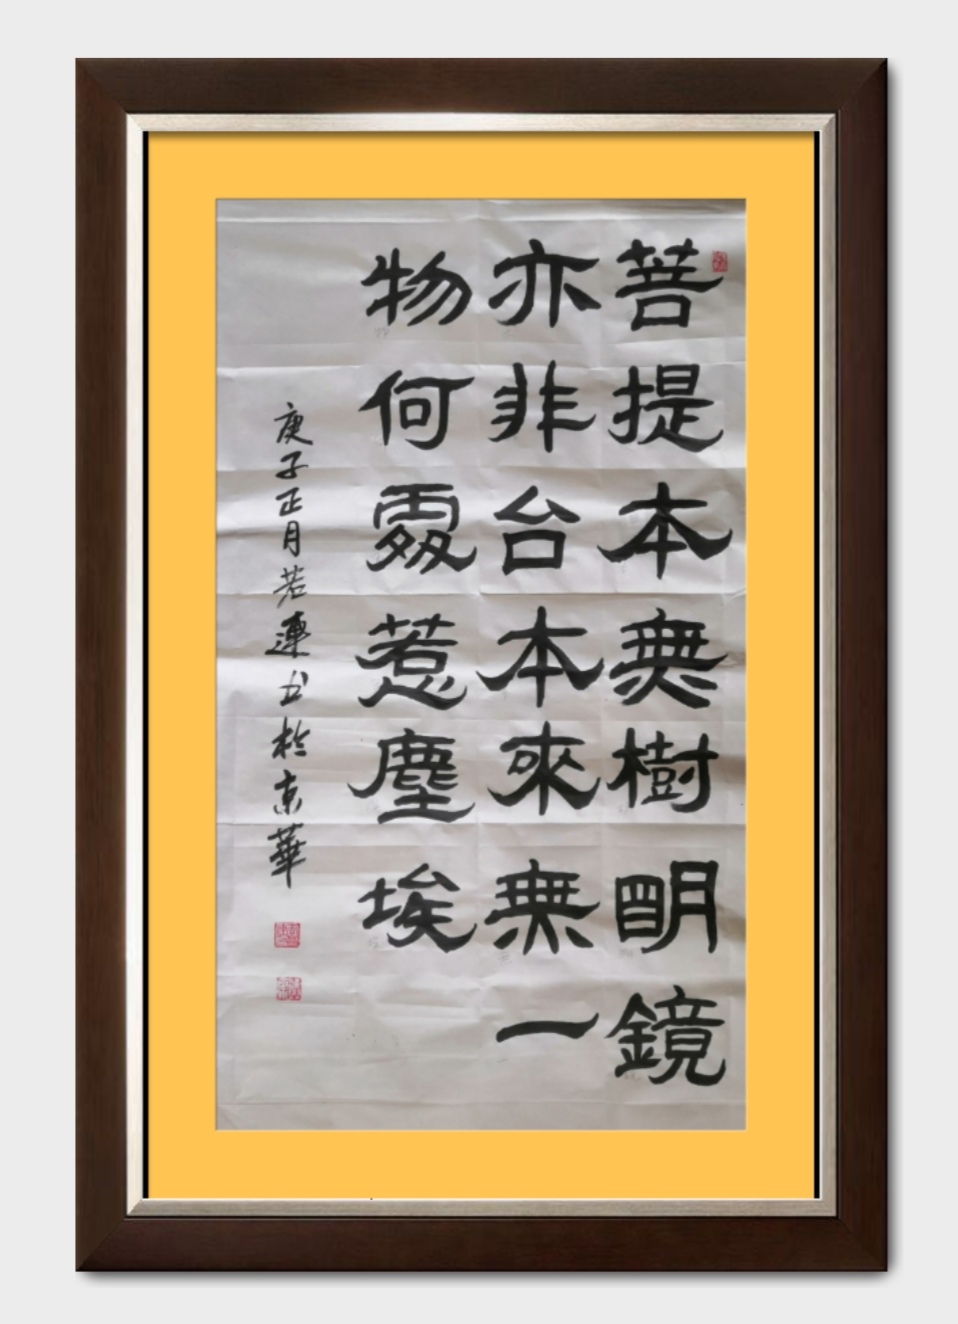 菩提本無樹明鏡
亦非台本來無一
物何處惹塵埃
庚子正月若蓮书於京華